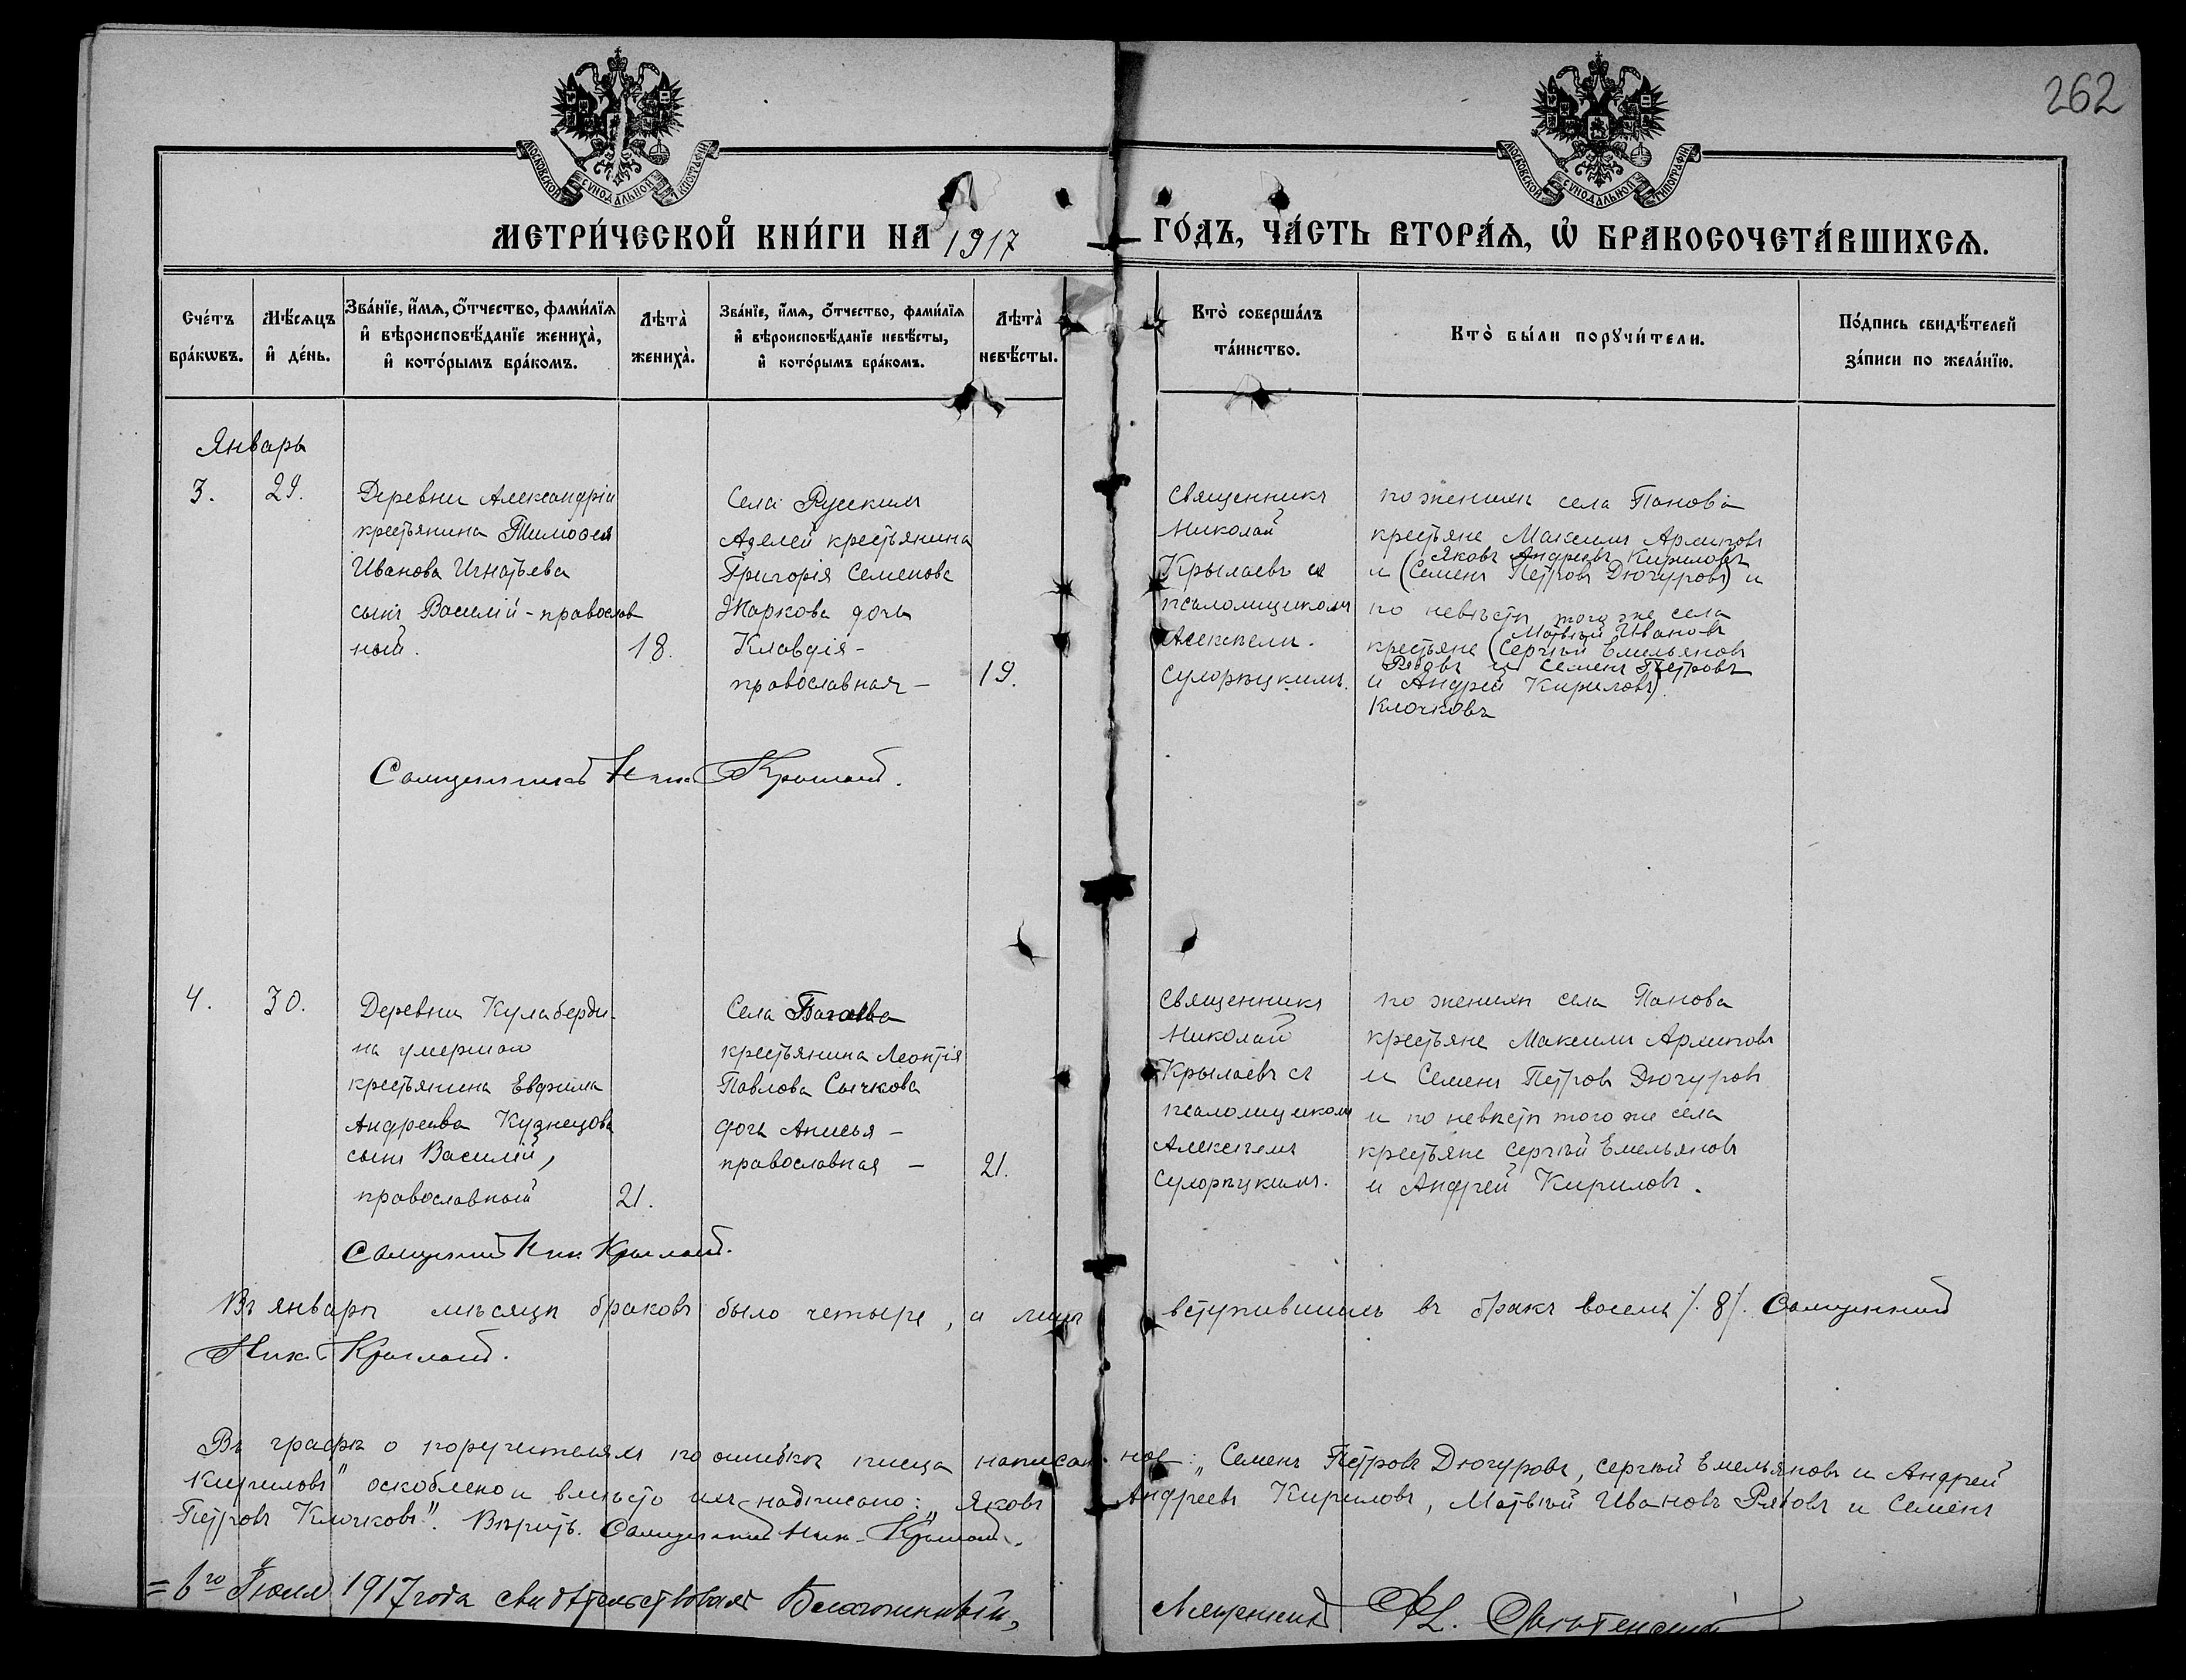 262
МОСКОВСКОЙ СУНОДАЛЬНОЙ ТИПОГРАФІИ
МОСКОВСКОЙ СУНОДАЛЬНОЙ ТИПОГРАФІИ
МЕТРИ́ЧЕСКОЙ КНИ́ГИ НА 1917 ГО́ДЪ, ЧА́СТЬ ВТОРА́Ѧ, Ѡ БРАКОСОЧЕТА́ВШИХСѦ.
Сче́тъ
бра́кѡвъ.
Мѣ́сѧцъ
и҆ де́нь.
Зва́нїе, и҆́мѧ, ѻ҆́тчество, фами́лїѧ
и҆ вѣроисповѣ́данїе жениха̀,
и҆ кото́рымъ бра́комъ.
Лѣта̀
жениха̀.
Зва́нїе, и҆́мѧ, ѻ҆́тчество, фами́лїѧ
и҆ вѣроисповѣ́данїе невѣ́сты,
и҆ кото́рымъ бра́комъ.
Лѣта̀
невѣ́сты.
Кто̀ соверша́лъ
та́инство.
Кто̀ бы́ли порꙋчи́тели.
По́дпись свидѣ́телей
за́писи по жела́нїю.
Январь
3.
29.
Деревни Александріи
крестьянина Тимоѳея
Иванова Игнатьева
сынъ Василій - православ
ный.
18.
Села Русскихъ
Аделей крестьянина
Григорія Семенова
Жаркова дочь
Клавдія -
православная -
19.
Священникъ
Николай
Крылаевъ съ
псаломщикомъ
Алексѣемъ
Сулорѣцкимъ.
по женихѣ села Панова
крестьяне Максимъ Архиповъ
Яковъ Андреевъ Кириловъ
и (Семенъ Петровъ Дюгуровъ) и
по невѣстѣ того же села
Матвѣй Ивановъ
крестьяне (Сергѣй Емельяновъ
Рябовъ и Семенъ Петровъ
и Андрей Кириловъ)
Клочковъ
Священникъ Ник. Крылаев.
4.
30.
Деревни Кулаберди-
на умершаго
крестьянина Евфима
Андреева Кузнецова
сынъ Василій,
православный
21.
Села
крестьянина Леонтія
Павлова Сычкова
дочь Анисья -
православная -
21.
Священникъ
Николай
Крылаевъ съ
псаломщикомъ
Алексѣемъ
Сулорѣцкимъ.
по женихѣ села Панова
крестьяне Максимъ Архиповъ
и Семенъ Петровъ Дюгуровъ
и по невѣстѣ того же села
крестьяне Сергѣй Емельяновъ
и Андрей Кириловъ.
Священникъ Ник. Крылаев.
Въ январѣ мѣсяцѣ браковъ было четыре, а лицъ вступившихъ въ бракъ восемь /. 8 /. Священникъ
Ник. Крылаев.
Въ графѣ о поручителяхъ по ошибкѣ писца написанное: „Семенъ Петровъ Дюгуровъ, Сергѣй Емельяновъ и Андрей
Кириловъ" оскоблено и вмѣсто ихъ надписано: „Яковъ Андреевъ Кириловъ, Матвѣй Ивановъ Рябовъ и Семенъ
Петровъ Клочковъ". Вѣрить. Священникъ Ник. Крылаев.
= 6го Іюля 1917 года свидѣтельствовалъ Благочинный, Священникъ